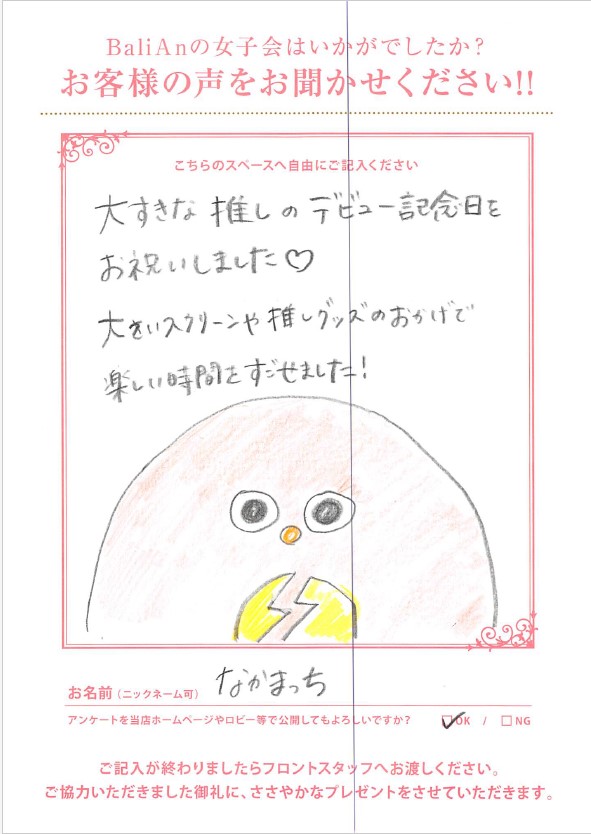 BaliAnの女子会はいかがでしたか?
お客様の声をお聞かせください!!
こちらのスペースへ自由にご記入ください
大すきな 推しの デビュー記念日を
お祝いしました♡
大きいスクリーンや推しグッズのおかげで
楽しい時間をすごせました!
お名前(ニックネーム可) なかまっち
アンケートを当店ホームページやロビー等で公開してもよろしいですか? ☑OK / □NG
ご記入が終わりましたらフロントスタッフへお渡しください。
ご協力いただきました御礼に、ささやかなプレゼントをさせていただきます。